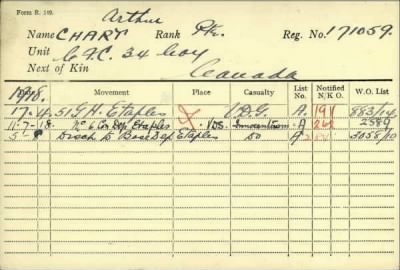 Form R. 149.
Arthur
Name CHART Rank Pte. Reg. No. 171059.
Unit C.F.C. 34 Coy
Next of Kin Canada
Date Movement Place Casualty List No. Notified N/K O. W.O. List
1918.
17-4. 51 G.H. Etaples X V.D.G. A. 191 883/14
11-7-18. No 6 Con Dep Etaples . VDS. A 262 2389
5-8 Disch to Base Dep Etaples Do A 3058/10